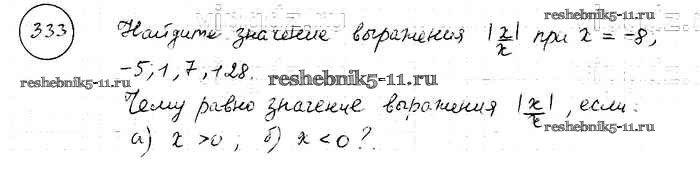 333 Найдите значение выражения |x/x| при x = -8,
reshebnik5-11.ru
-5, 1, 7, 128.
reshebnik5-11.ru
Чему равно значение выражения |x/x|, если:
reshebnik5-11.ru
а) x > 0; б) x < 0?